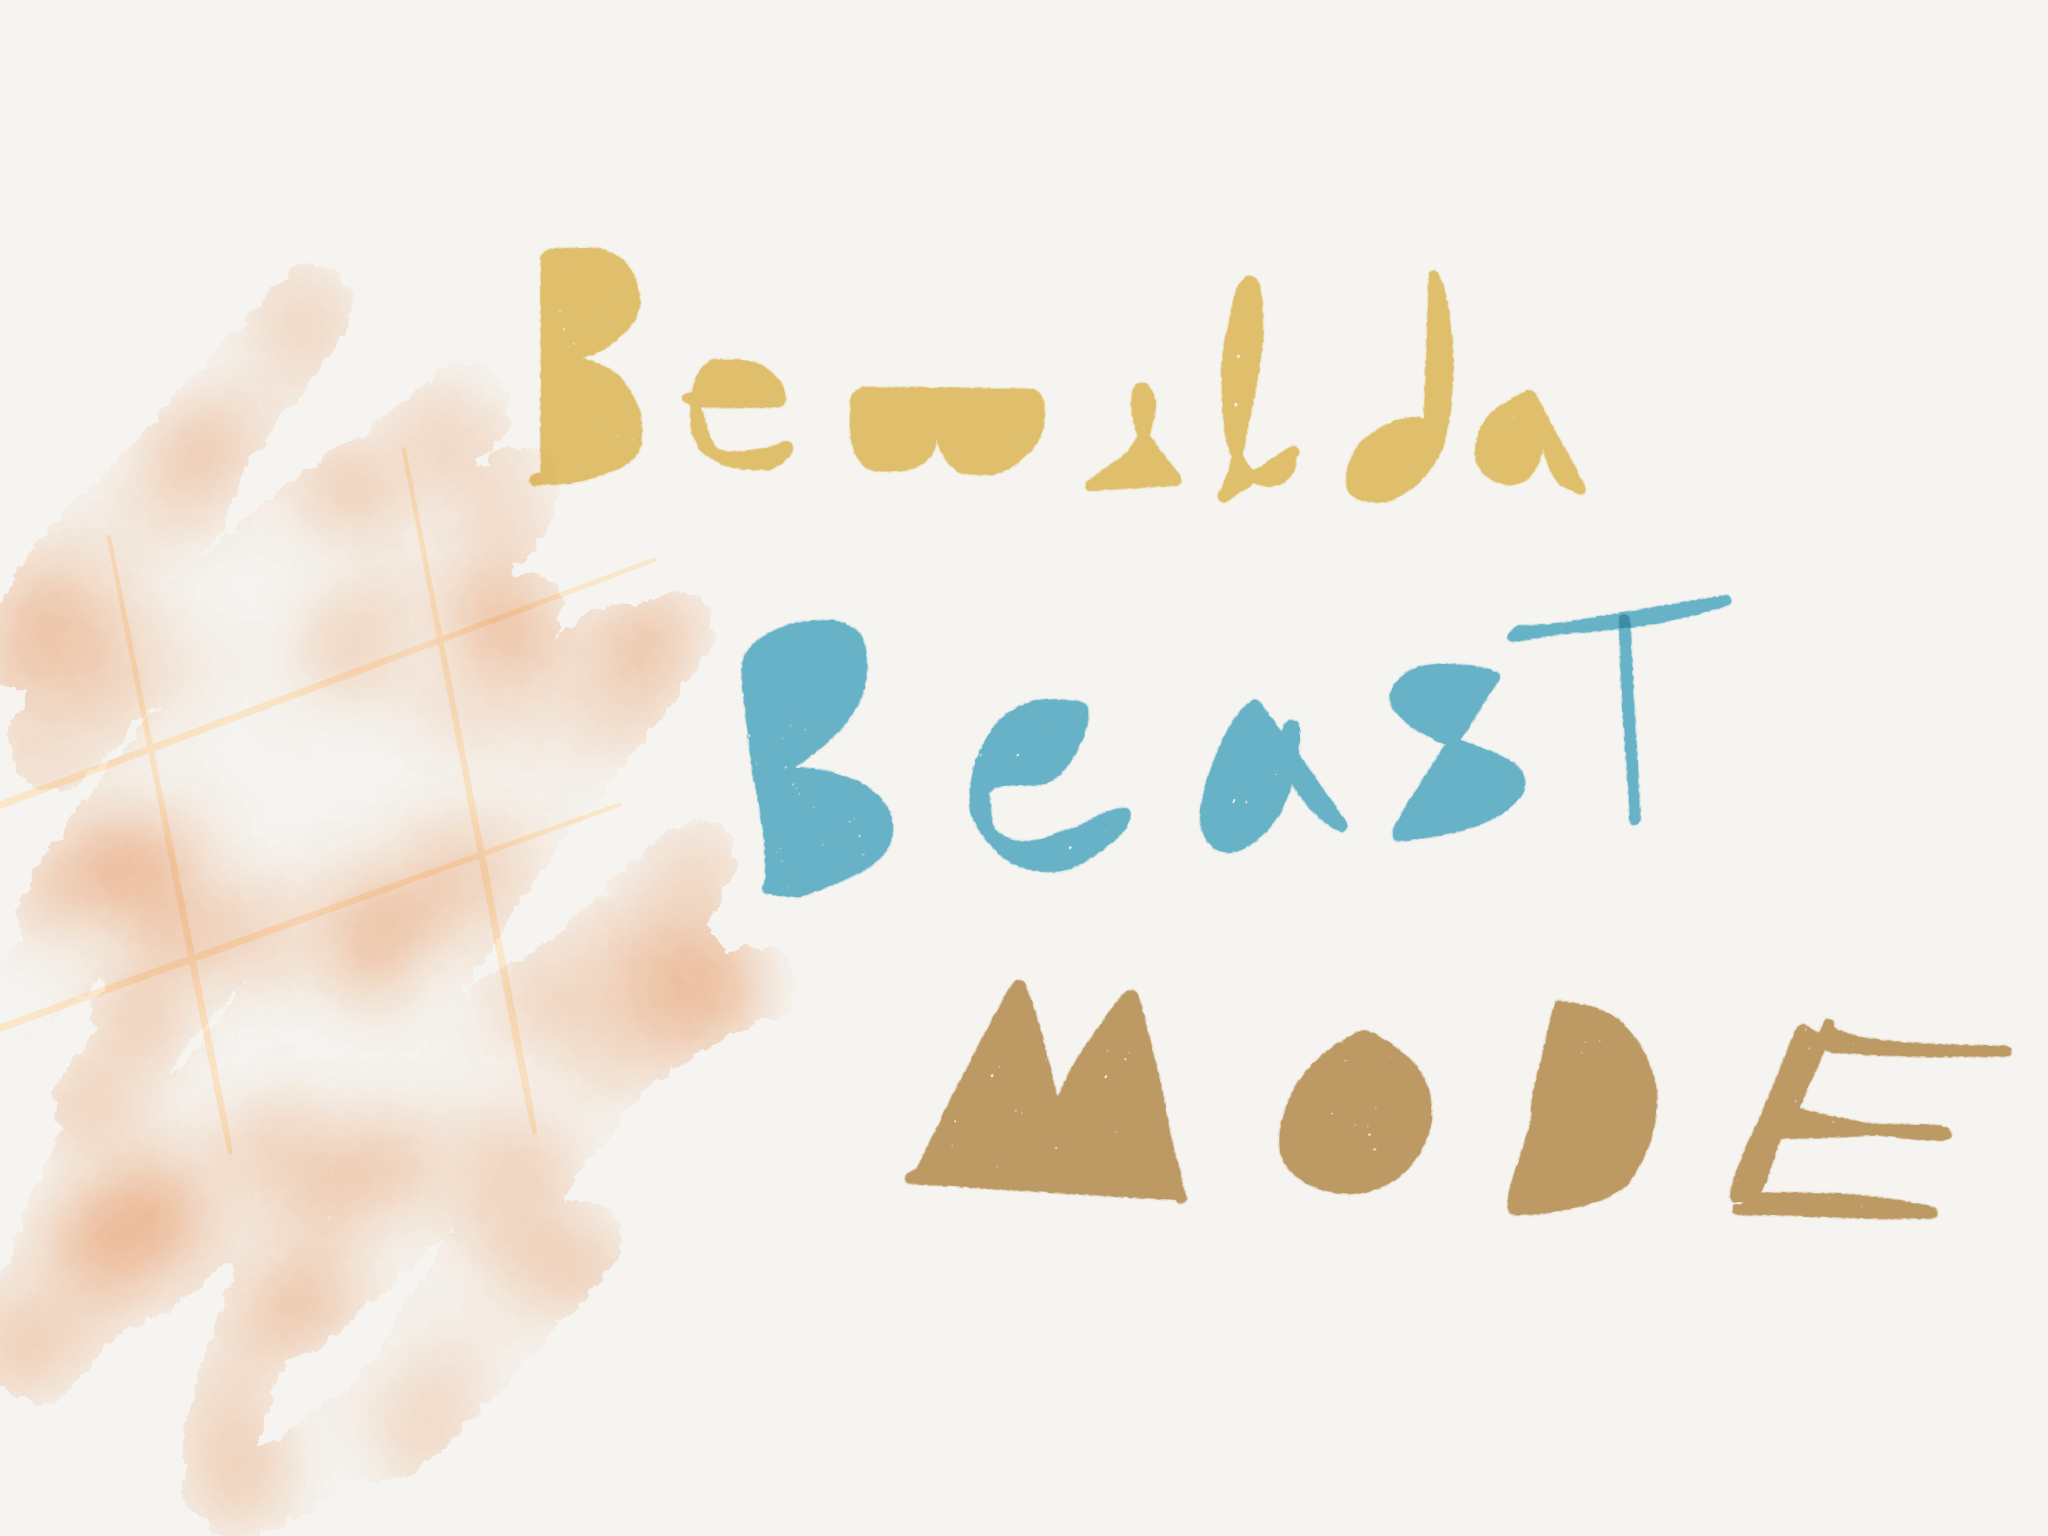 Bewilda
BeasT
MODE